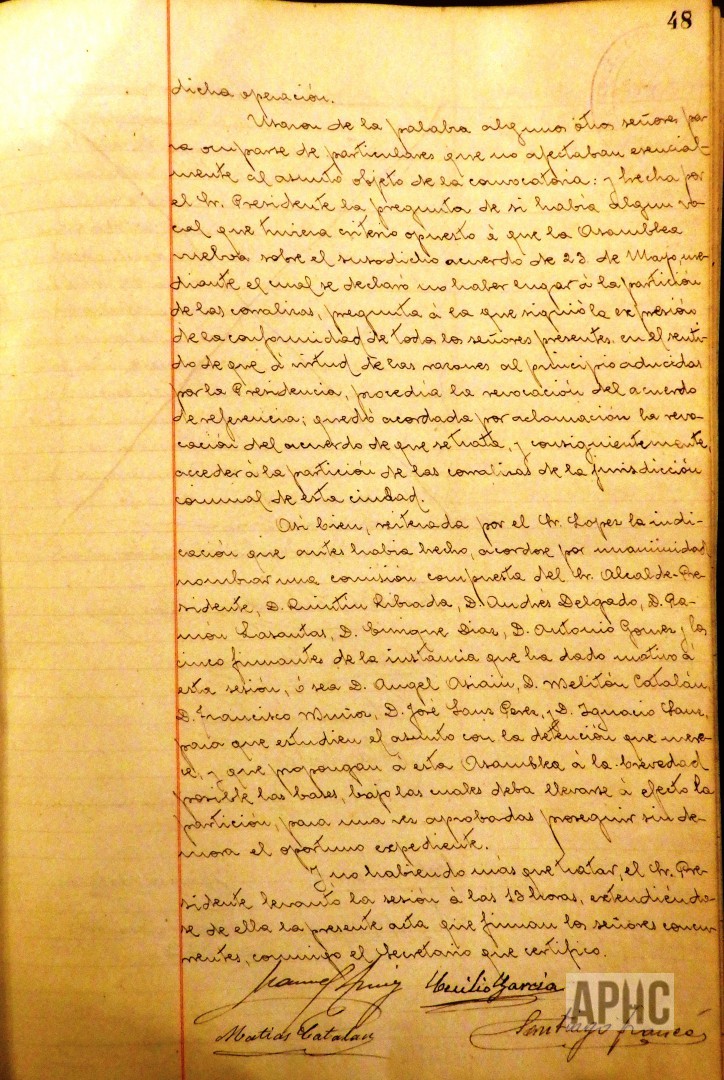 48
dicha operación.
Usaron de la palabra algunos otros señores pa-
ra ocuparse de particulares que no afectaban esencial-
mente al asunto objeto de la convocatoria: y hecha por
el Sr. Presidente la pregunta de si había algun vo-
cal que tuviera criterio opuesto á que la Asamblea
vuelva sobre el susodicho acuerdo de 23 de Mayo me-
diante el cual se declaró no haber lugar á la partición
de las corralizas, pregunta á la que siguió la expresión
de la conformidad de todos los señores presentes, en el senti-
do de que á virtud de las razones al principio aducidas
por la Presidencia, procedía la revocación del acuerdo
de referencia; quedó acordada por aclamación la revo-
cación del acuerdo de que se trata, y consiguientemente,
acceder á la partición de las corralizas de la jurisdicción
comunal de esta ciudad.
Asi bien, reiterada por el Sr. Lopez la indi-
cación que antes habia hecho, acordose por unanimidad
nombrar una comisión compuesta del Sr. Alcalde-Pre-
sidente, D. Quintin Librada, D. Andrés Delgado, D. Ra-
món Lasantas, D. Enrique Diaz, D. Antonio Gomez y los
cinco firmantes de la instancia que ha dado motivo á
esta sesión, ó sea D. Angel Asiain, D. Melitón Catalán,
D. Francisco Muñoz, D. José Sanz Perez, y D. Ignacio
para que estudien el asunto con la detención que mere-
ce, y que propongan á esta Asamblea á la brevedad
posible las bases, bajo las cuales deba llevarse á efecto la
partición, para una vez aprobadas proseguir sin de-
mora el oportuno expediente.
Y no habiendo más que tratar, el Sr. Pre-
sidente levantó la sesión á las 13 horas, extendiéndo-
se de ella la presente acta que firman los señores concu-
rrentes, conmigo el Secretario que certifico.
Cecilio García
Matias Catalan
Santiago Francés
APHC